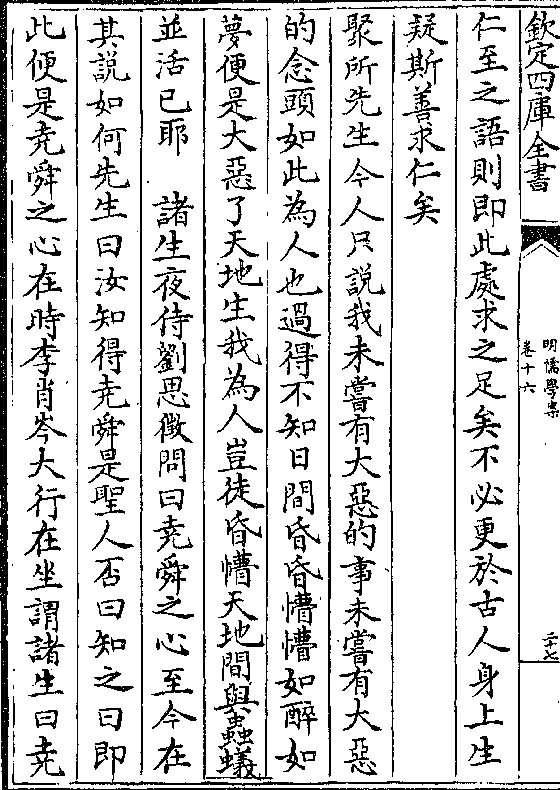 欽定四庫全書
明儒學案
卷十六
二十七
仁至之語則即此處求之足矣不必更於古人身上生
疑斯善求仁矣
聚所先生今人只說我未嘗有大惡的事未嘗有大惡
的念頭如此為人也過得不知日間昏昏懵懵如醉如
夢便是大惡了天地生我為人豈徒昏懵天地間與蟲蟻
並活已耶　諸生夜侍劉思徵問曰堯舜之心至今在
其說如何先生曰汝知得堯舜是聖人否曰知之曰即
此便是堯舜之心在時李肖岑大行在坐謂諸生曰堯